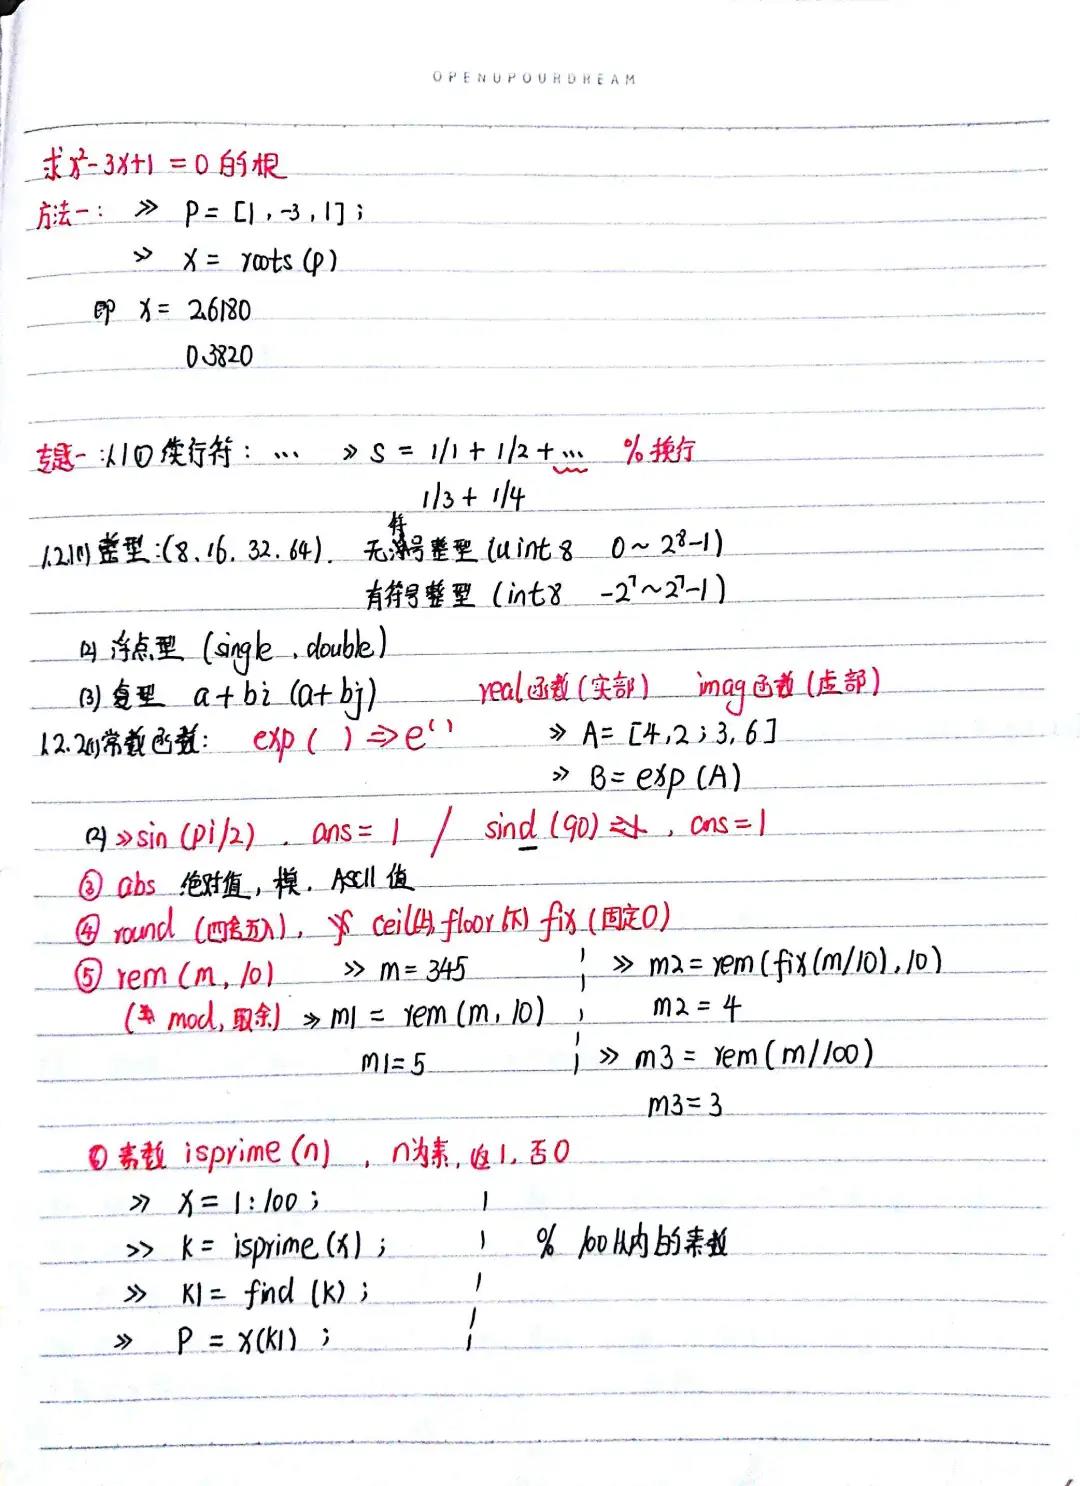 OPENUPOURDREAM
求x²-3x+1=0的根
方法一: >> P=[1,-3,1];
>> x= roots(p)
即 x= 2.6180
0.3820
专题一: 1.1① 续行符: … >> S = 1/1 + 1/2 + … % 换行
1/3 + 1/4
1.2.1(1) 整型:(8、16、32、64). 无符号整型 (uint8 0~2⁸-1)
有符号整型 (int8 -2⁷~2⁷-1)
(2) 浮点型 (single、double)
(3) 复型 a+bi (a+bj) real函数(实部) imag函数(虚部)
1.2.2(1)常数函数: exp( )⇒e⁽⁾ >> A=[4,2;3,6]
>> B=exp(A)
(2) >> sin(pi/2). ans=1 / sind(90) , ans=1
③ abs 绝对值,模. ASCII值
④ round (四舍五入), ceil(上) floor(下) fix(固定0)
⑤ rem(m,10) >> m=345 >> m2=rem(fix(m/10),10)
( mod,取余) >> m1 = rem(m,10) m2=4
m1=5 >> m3 = rem(m/100)
m3=3
⑥ 素数 isprime(n) , n为素,返1.否0
>> X=1:100;
>> K= isprime(x); % 100以内的素数
>> K1= find(K);
>> P = x(K1);